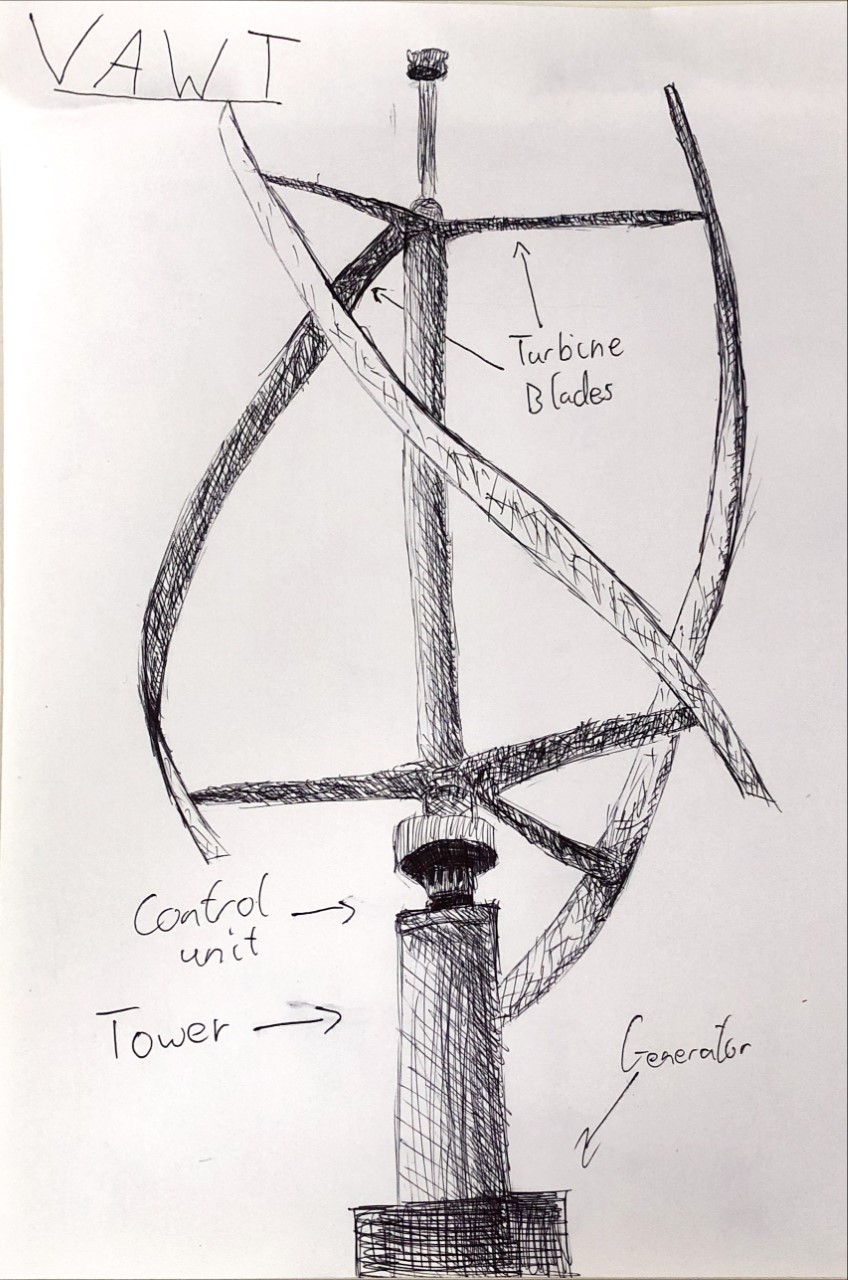 VAWT
Turbine
Blades
Control
unit
Tower
Generator